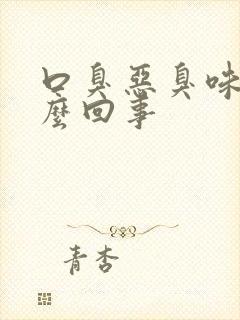 口臭惡臭味
麼回事
青杏